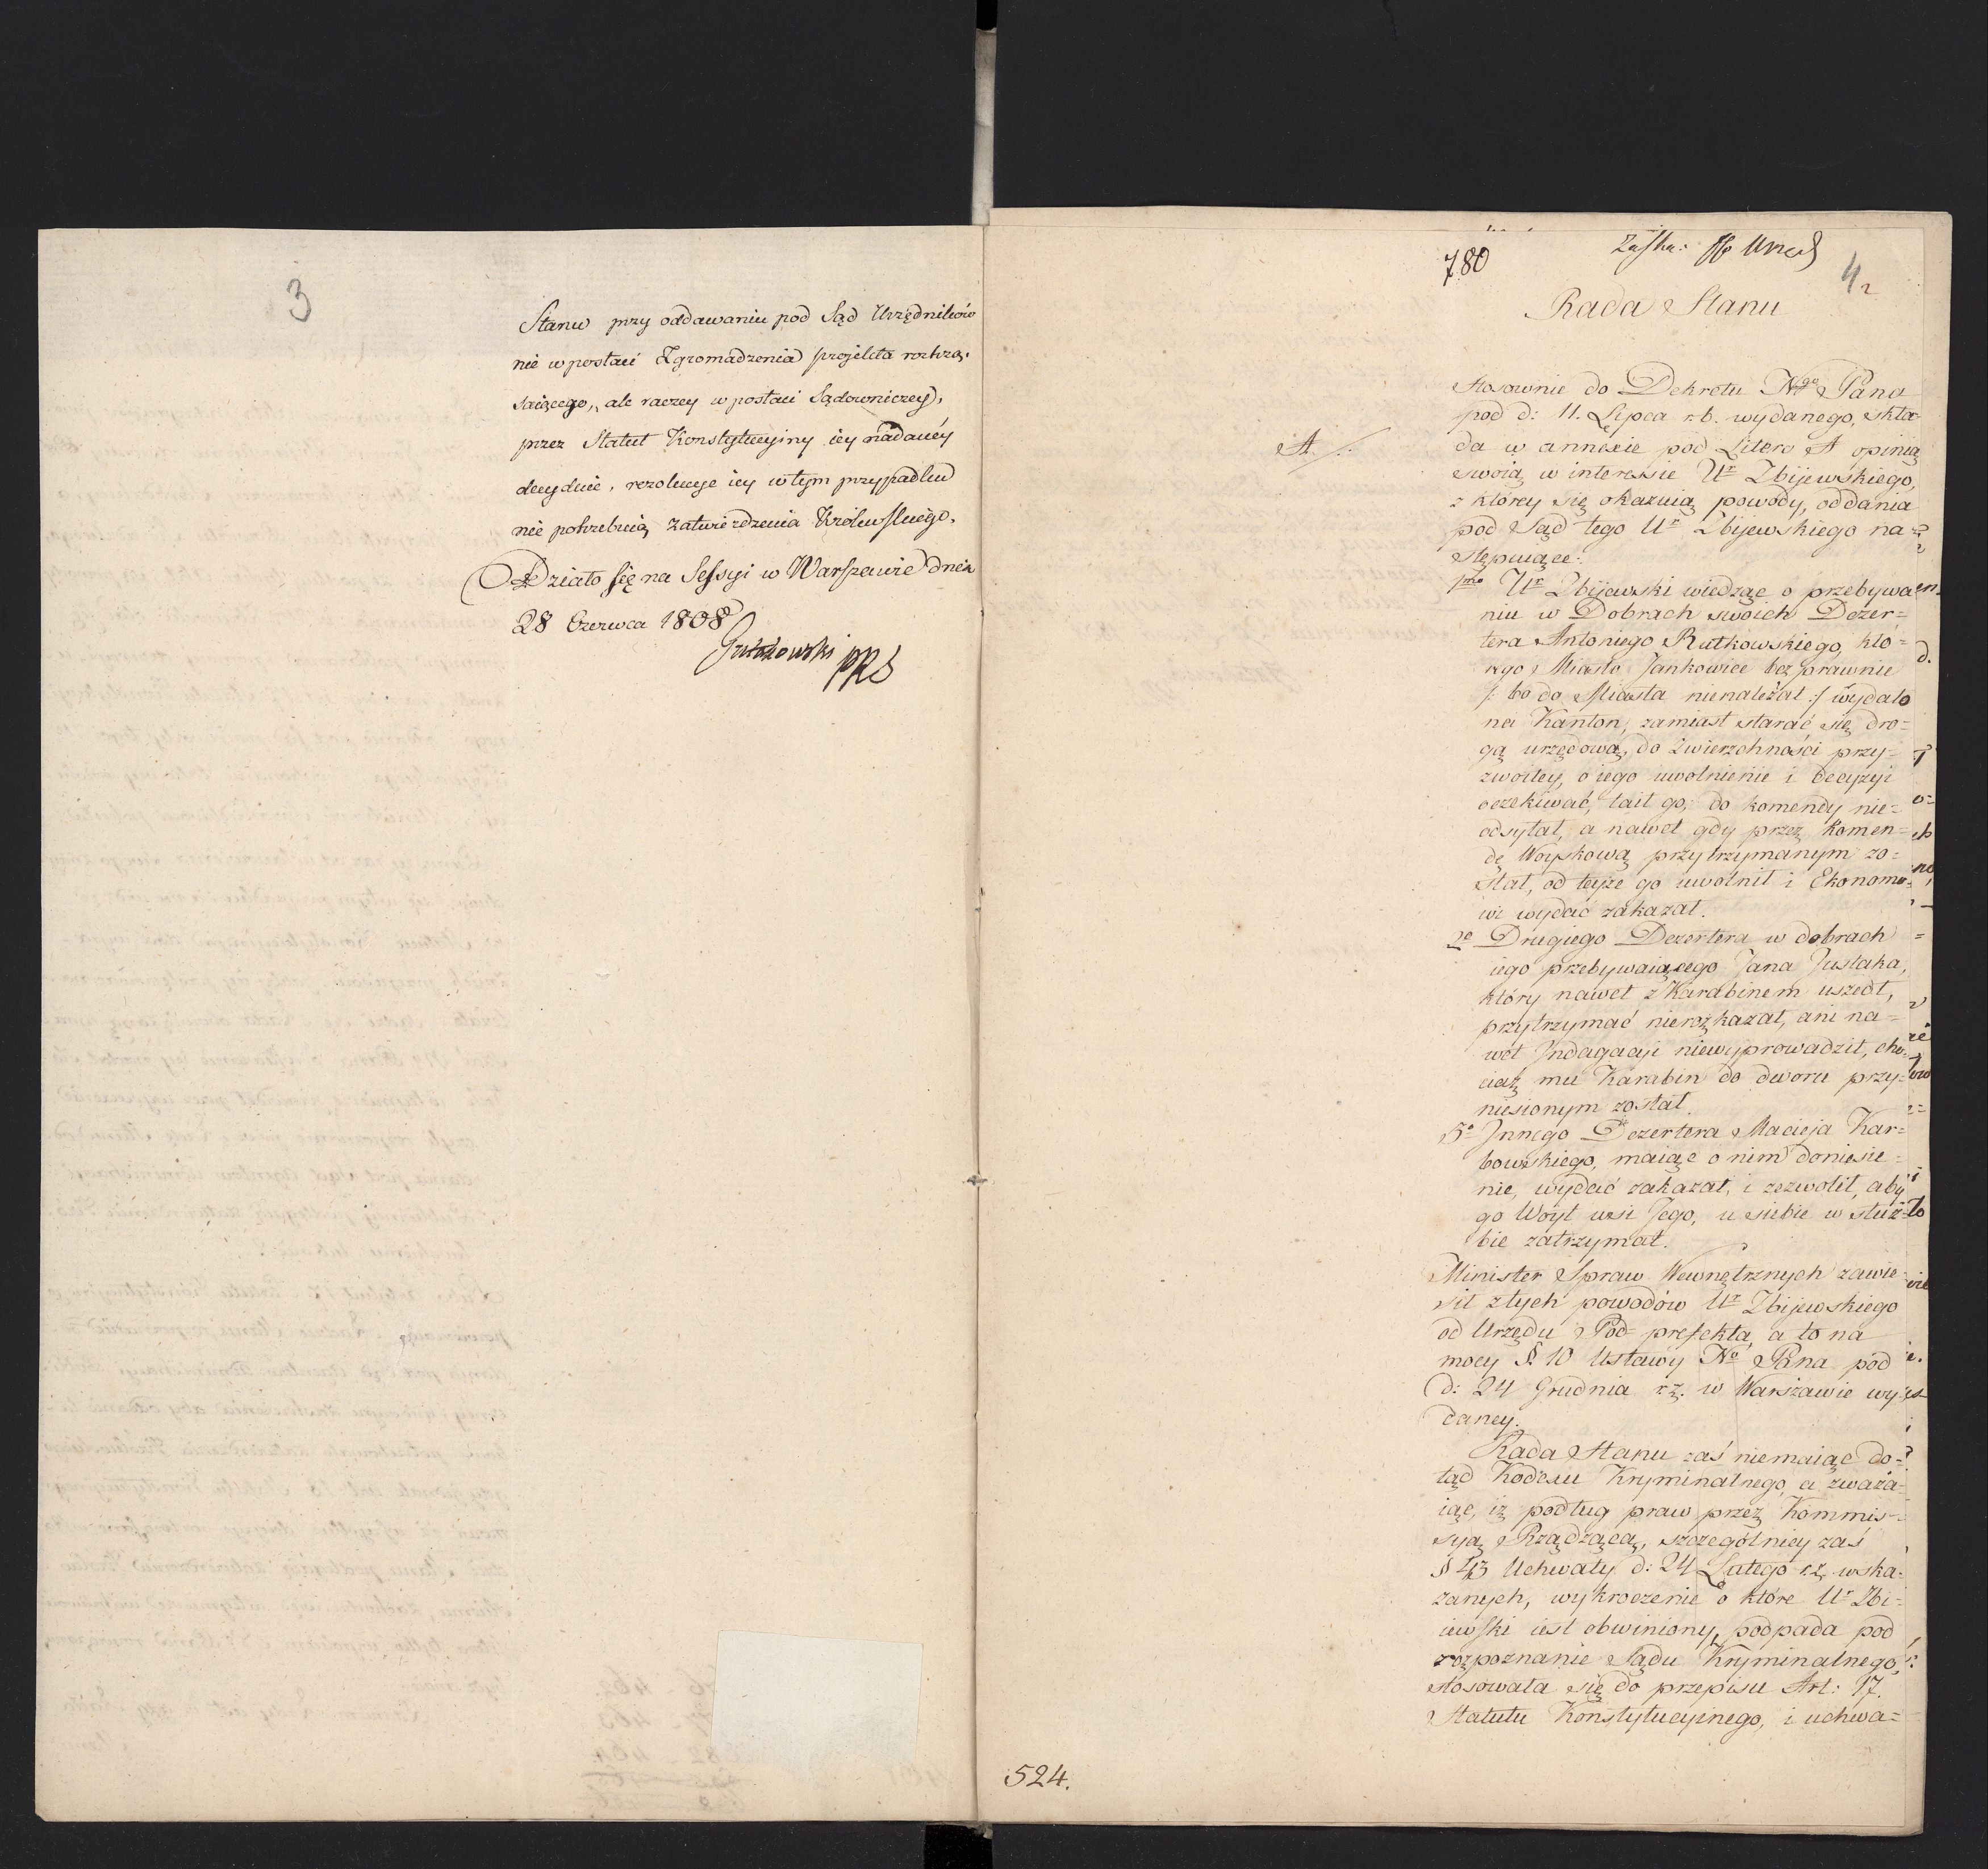 3
Stanu przy oddawaniu pod Sąd Urzędników
nie w postaci Zgromadzenia projekta roztrzą-
saiącego, ale raczey w postaci Sądowniczey,
przez Statut Konstytucyiny iey nadaney
decyduie, rezolucye iey w tym przypadku
nie potrzebuią zatwierdzenia Królewskiego.
Działo się na Sessyi w Warszawie dnia
28 Czerwca 1808
Gutakowski PRS
780
4
Rada Stanu
Stosownie do Dekretu Ngo Pana
pod d: 11. Lipca r.b. wydanego, skła-
A
da w annexie pod Litera A opinią
swoią w interessie Ur Zbijewskiego,
z którey się okazuią powody, oddania
pod Sąd tego Ur Zbijewskiego na-
stępuiące:
1mo Ur Zbijewski wiedząc o przebywa
niu w Dobrach swoich Dezer-
tera Antoniego Rutkowskiego, któ-
rego Miasto Jankowice bezprawnie
/: bo do Miasta nienależał :/ wydało
na Kanton, zamiast starać się dro-
gą urzędową, do zwierzchności przy-
zwoitey, o iego uwolnienie i decyzyi
oczekiwać, taił go, do komendy nie-
odsyłał, a nawet gdy przez Komen-
dę Woyskową przytrzymanym zo-
stał, od teyże go uwolnił i Ekonomo-
wi wydać zakazał.
2o Drugiego Dezertera w dobrach
iego przebywaiącego Jana Justaka,
który nawet z Karabinem uszedł,
przytrzymać nierozkazał, ani na-
wet Indagacyi niewyprowadził, cho-
ciaż mu Karabin do dworu przy-
niesionym został.
3o Innego Dezertera Macieja Kar-
bowskiego, maiąc o nim doniesie-
nie, wydać zakazał, i zezwolił, aby
go Woyt wsi Jego, u siebie w służ-
bie zatrzymał.
Minister Spraw Wewnętrznych zawie-
sił z tych powodów Ur Zbijewskiego
od Urzędu Pod-prefekta, a to na
mocy § 10 Ustawy No Pana pod
d: 24 Grudnia r.z. w Warszawie wy-
daney.
Rada Stanu zaś niemaiąc do-
tąd Kodexu Kryminalnego, a zważa-
iąc, iż podług praw przez Kommis-
syą Rządzącą, szczególniey zaś
§ 43 Uchwały d: 24 Lutego r.z. wska-
zanych, wykroczenie o które Ur Zbi-
iewski iest obwiniony, podpada pod
rozpoznanie Sądu Kryminalnego,
stosowała się do przepisu Art: 17.
Statutu Konstytucyinego, i uchwa-
524.